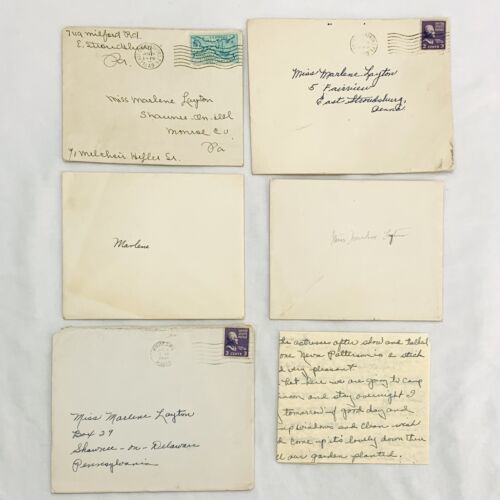 749 Milford Rd.
E. Stroudsburg
Pa.
Miss Marlene Layton
Shawnee-on-del
Monroe Co
Pa
Miss Marlene Layton
5 Fairview
East Stroudsburg,
Penna.
3 CENTS 3
Marlene
Miss Marlene Layton
3 CENTS 3
Miss Marlene Layton
Box 29
Shawnee-on-Delaware
Pennsylvania
the actresses after show and talked
one Neva Patterson is a
d very pleasant
but here we are going to camp
noon and stay overnight I
tomorrow of good day and
up windows and clean
d come up its lovely down there
ll our garden planted.